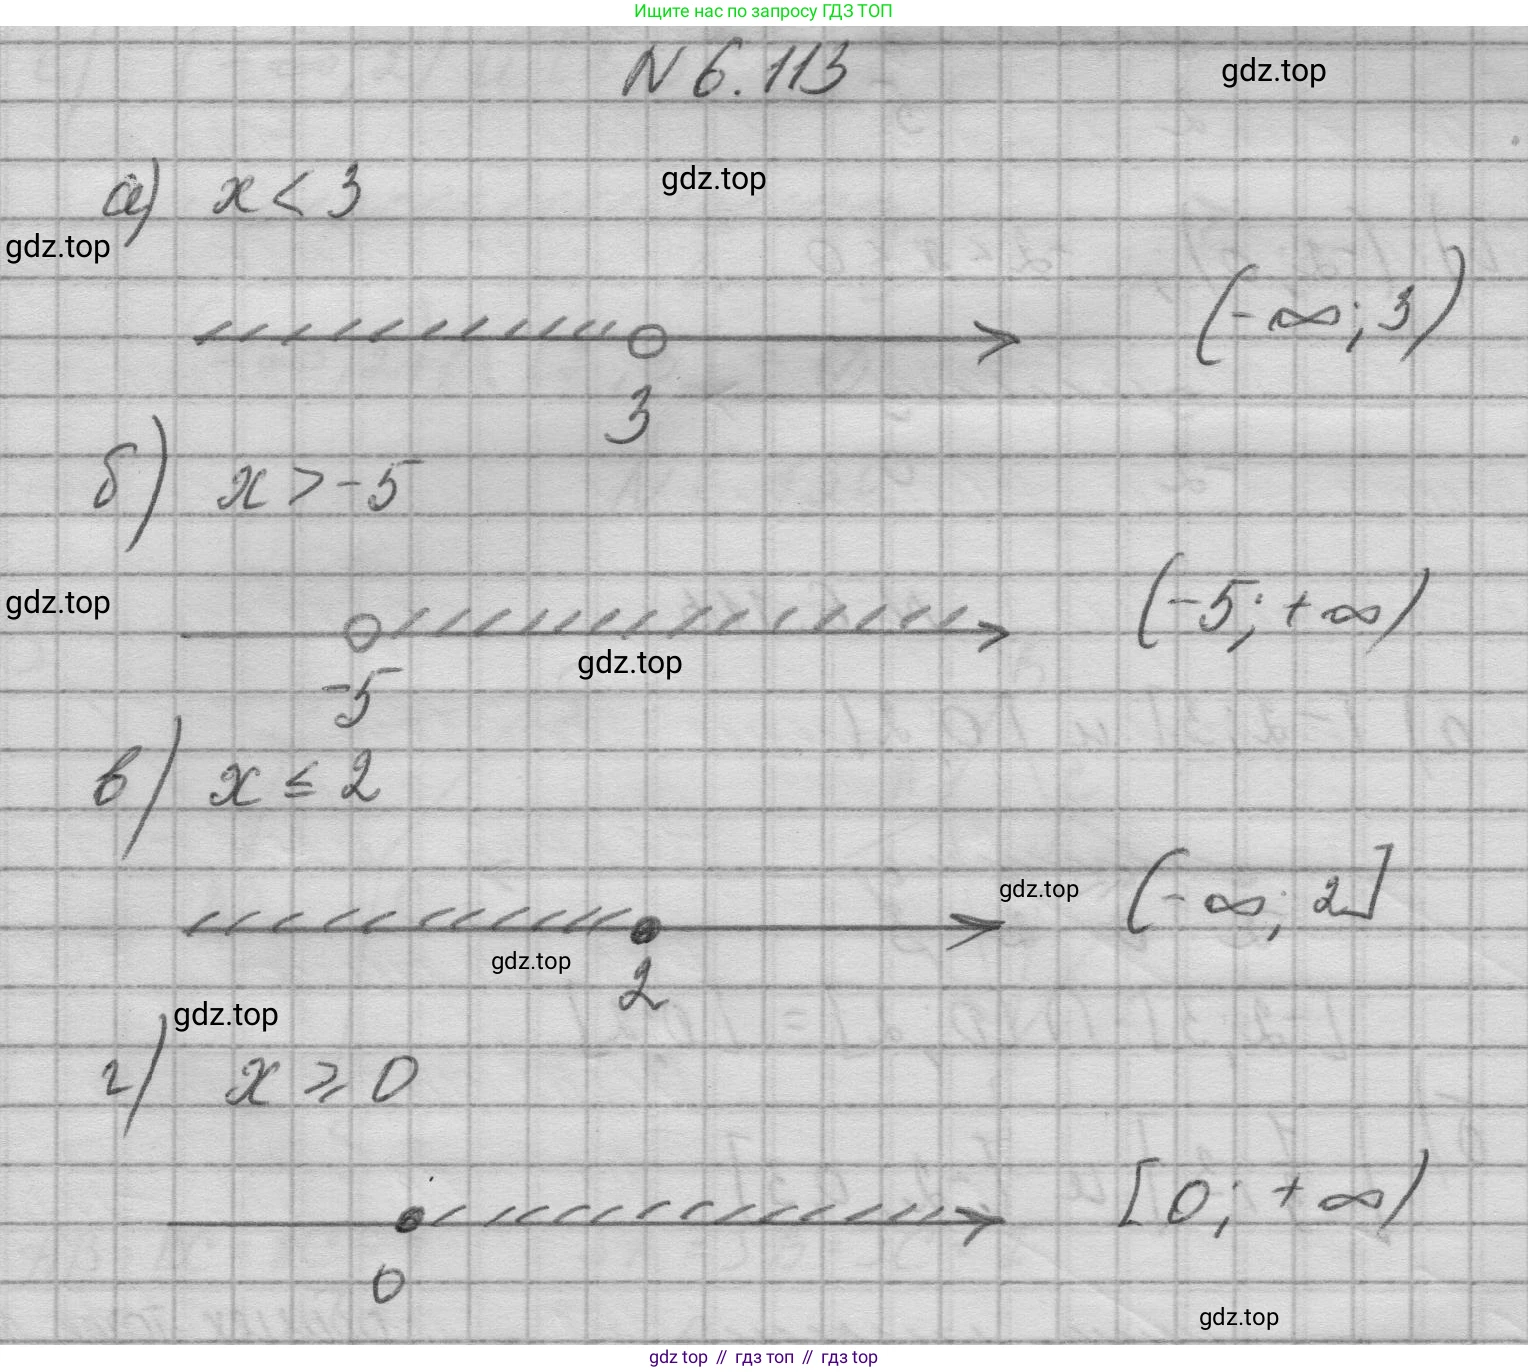 Ищите нас по запросу ГДЗ ТОП
N 6.113
gdz.top
а) x < 3
gdz.top
gdz.top
(-∞; 3)
3
б) x > -5
gdz.top
(-5; +∞)
gdz.top
-5
в) x ≤ 2
gdz.top
(-∞; 2]
gdz.top
2
gdz.top
г) x ⩾ 0
[0; +∞)
0
gdz.top
gdz top // гдз топ // гдз top